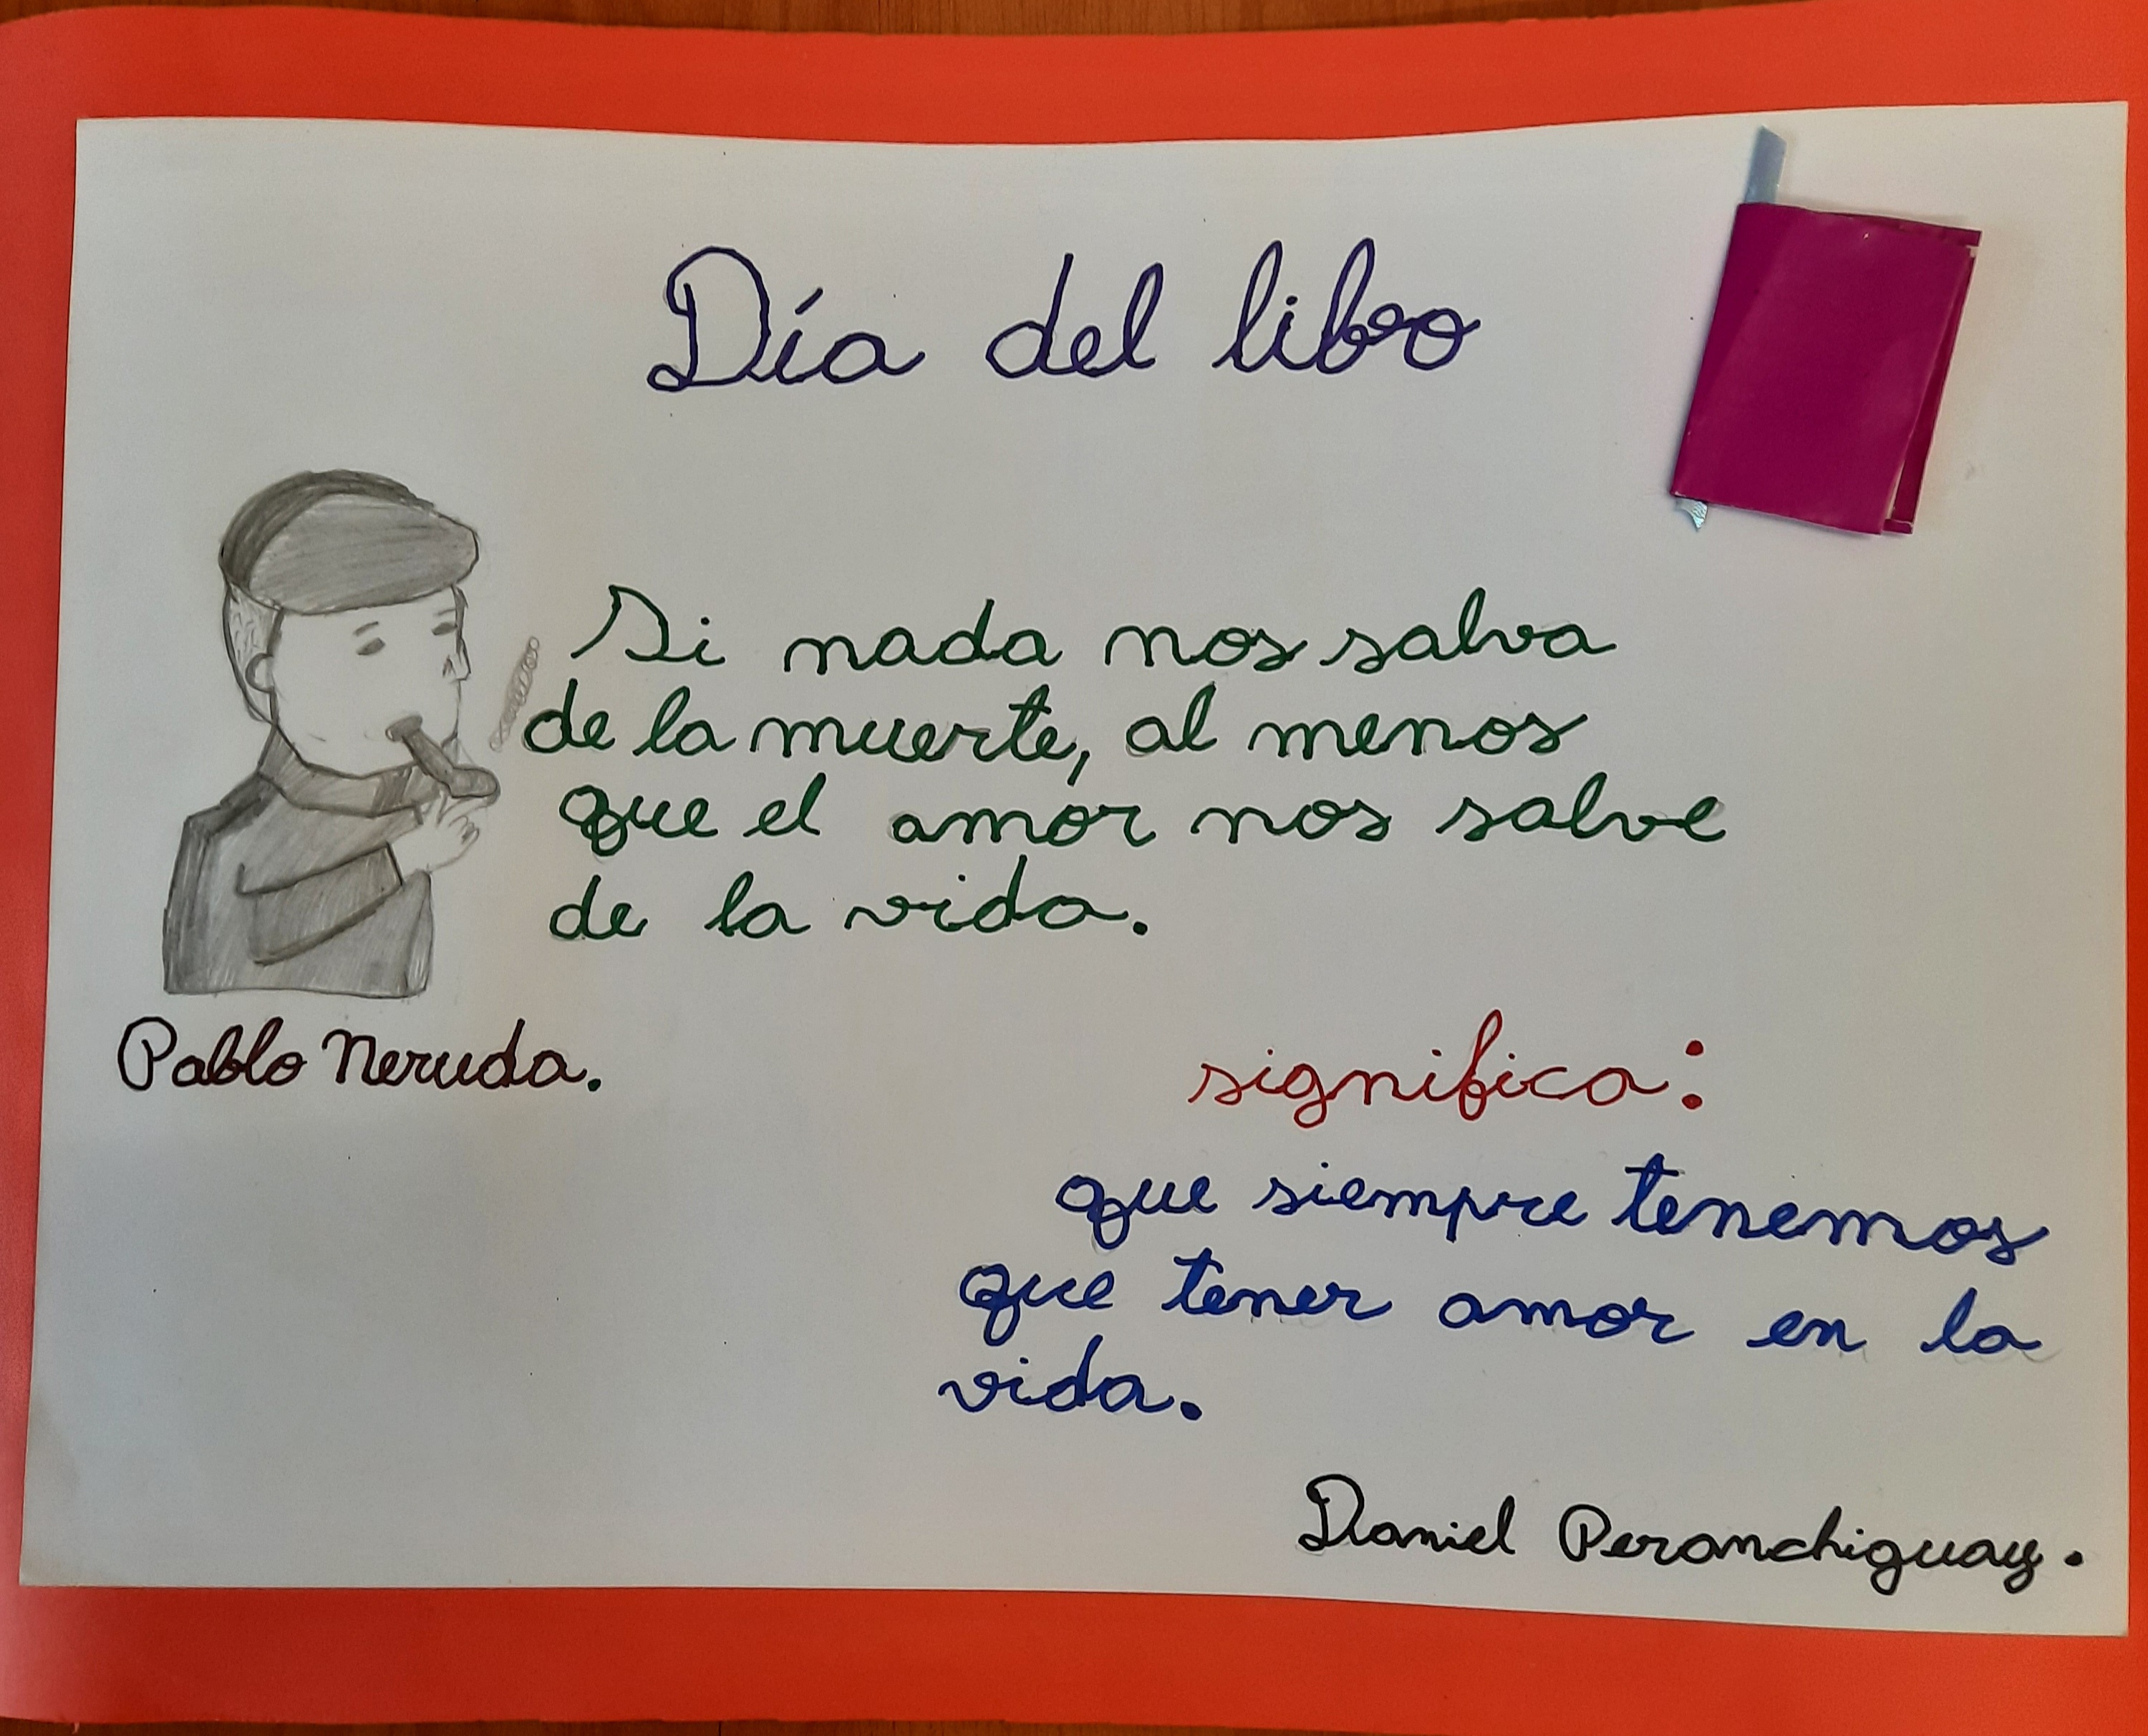 Día del libro
Si nada nos salva
de la muerte, al menos
que el amor nos salve
de la vida.
Pablo Neruda.
significa:
que siempre tenemos
que tener amor en la
vida.
Daniel Peranchiguay.